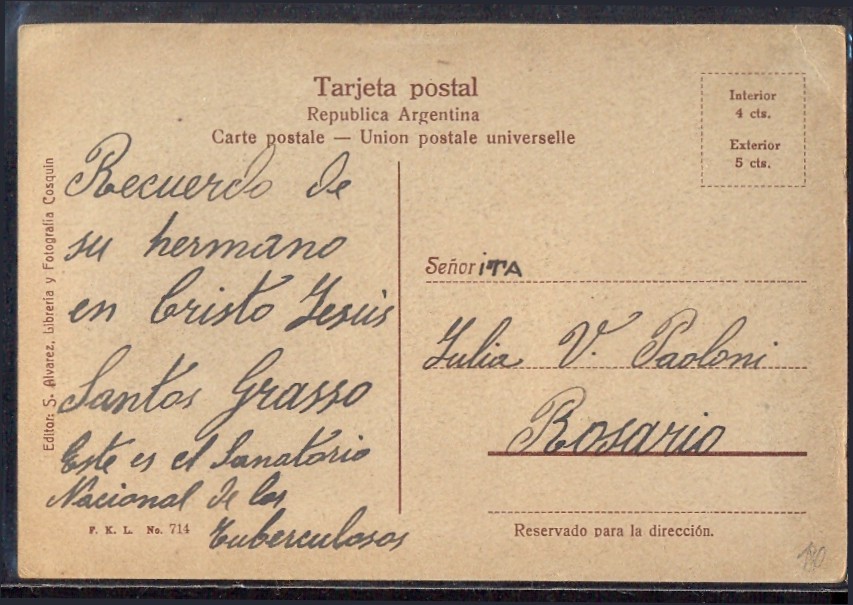 Tarjeta postal
Republica Argentina
Carte postale — Union postale universelle
Interior
4 cts.
Exterior
5 cts.
Editor: S. Alvarez, Libreria y Fotografia Cosquin
Recuerdo de
su hermano
en Cristo Jesús
Santos Grasso
Este es el Sanatorio
Nacional de los
tuberculosos
F. K. L. No. 714
Señorita
Julia V. Paoloni
Rosario
Reservado para la dirección.